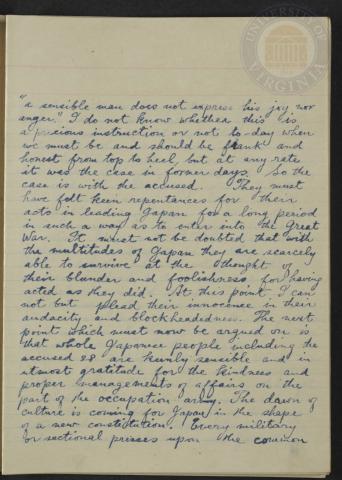 UNIVERSITY OF VIRGINIA
"a sensible man does not express his joy nor
anger." I do not know whether this is
a precious instruction or not to-day when
we must be and should be frank and
honest from top to heel, but at any rate
it was the case in former days. So the
case is with the accused. They must
have felt keen repentances for their
acts in leading Japan for a long period
in such a way as to enter into the Great
War. It must not be doubted that with
the multitudes of Japan they are scarcely
able to survive at the thought of
their blunder and foolishness for having
acted as they did. At this point I can
not but plead their innocence in their
audacity and blockheadedness. The next
point which must now be argued on is
that whole Japanese people including the
accused 28 are keenly sensible and in
utmost gratitude for the kindness and
proper managements of affairs on the
part of the occupation army. The dawn of
culture is coming for Japan in the shape
of a new constitution. Every military
or sectional presses upon the common